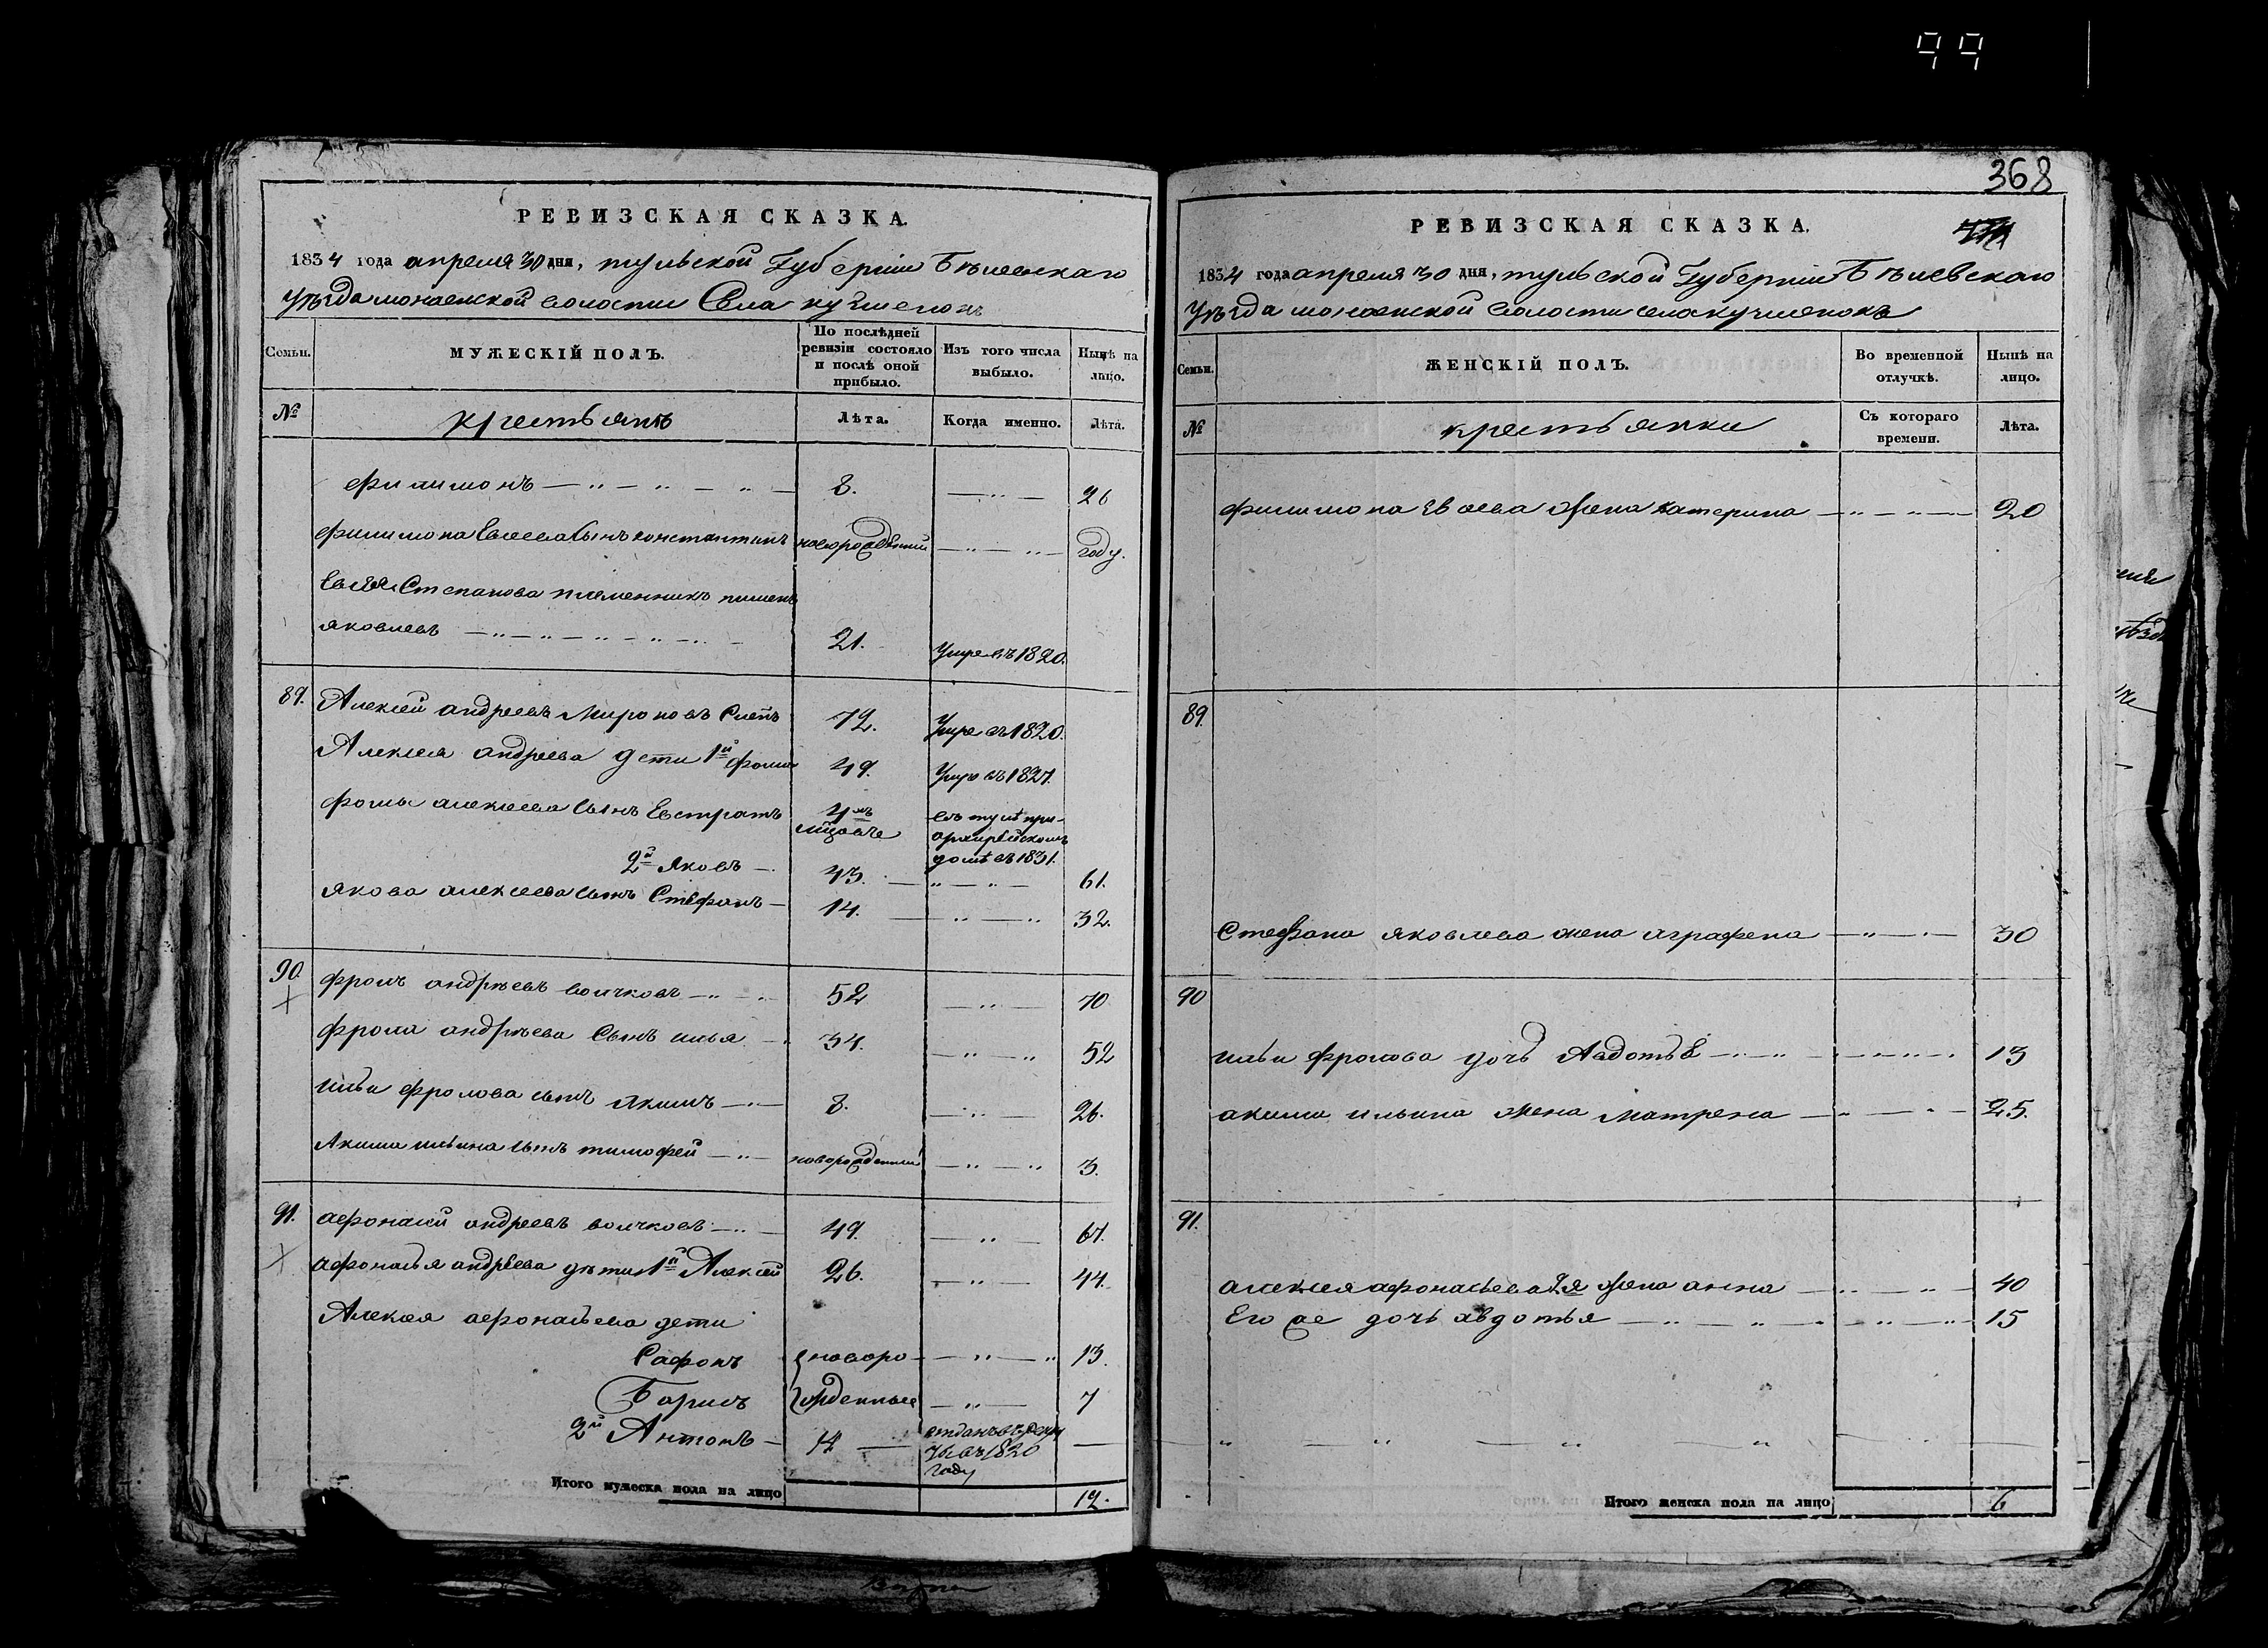 99
368
РЕВИЗСКАЯ СКАЗКА.
1834 года апреля 30 дня, тульской Губерніи Бѣлевскаго
Уѣзда волости Села
Семьи.
МУЖЕСКІЙ ПОЛЪ.
По послѣдней ревизіи состояло и послѣ оной прибыло.
Изъ того числа выбыло.
Нынѣ на лицо.
№
крестьянѣ
Лѣта.
Когда именно.
Лѣта.
филимонъ — „ — „ — „ — 8. — „ — 26
филимона Евсеева Сынъ константинъ новорожденный — „ — „ — году.
Степанова племенникъ пименъ
яковлевъ — „ — „ — „ — „ — 21. Умре въ 1820.
89. Алексей андреевъ Мироновъ Слепъ 72. Умре въ 1820.
Алексея андреева дети 1й фома 49. Умре въ 1827.
фомы алексеева Сынъ Евстратъ 4хъ мцовъ въ туле при архирейскомъ доме съ 1831.
2й Яковъ — 43. — „ — „ — 61.
якова алексеева Сынъ Стефанъ — 14. — „ — „ 32.
90. фролъ андреевъ волчковъ — „ — 52 — „ — 70
фрола андреева Сынъ илья — 34. — „ — „ 52
ильи фролова сынъ якимъ — „ — 8. — „ — 26.
Акима ильина Сынъ тимофей — „ — новорожденный — „ — „ 3.
91. афонасий андреевъ волчковъ — „ — 49. — „ — 67.
афонасья андреева дѣти 1й Алексей 26. — „ — 44.
Алексея афонасьева дети
Сафонъ новоро- — „ — „ 13.
Борисъ жденные — „ — 7
2й Антонъ — 14 — отданъ въ рекруты въ 1820 году —
Итого мужеска пола на лицо 12.
РЕВИЗСКАЯ СКАЗКА.
1834 года апреля 30 дня, тульской Губерніи Бѣлевскаго
Уѣзда волости села
Семьи.
ЖЕНСКІЙ ПОЛЪ.
Во временной отлучкѣ.
Нынѣ на лицо.
№
крестьянки
Съ котораго времени.
Лѣта.
филимона Евсева жена катерина — „ — „ — 20
89.
Стефана яковлева жена аграфена — „ — „ — 30
90
ильи фролова дочь Авдотья — „ — „ — 13
акима ильина жена матрена — „ — „ — 25.
91.
алексея афонасьева 2я жена анна — „ — „ — 40
Его же дочь авдотья — „ — „ — „ — 15
„ — „ — „ — „ —
Итого женска пола на лицо 6